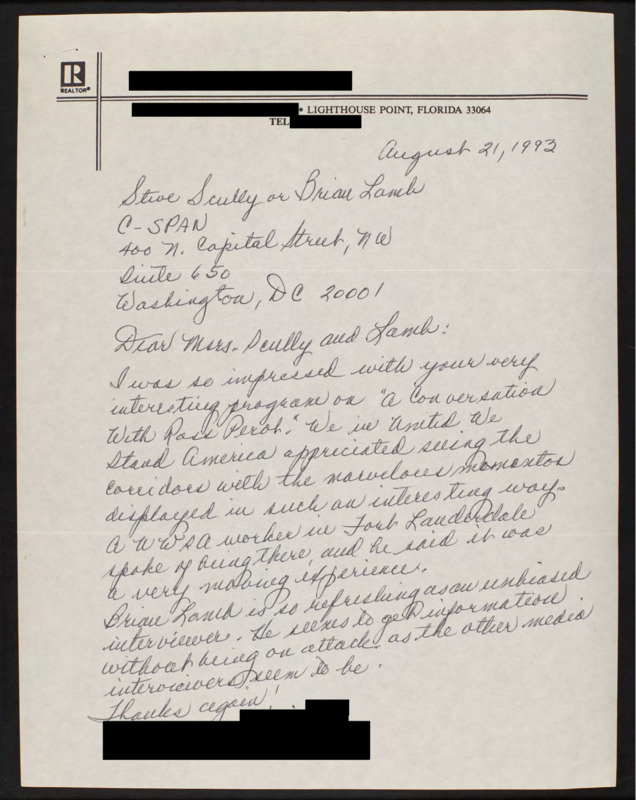 R
REALTOR®
• LIGHTHOUSE POINT, FLORIDA 33064
TEL
August 21, 1993
Steve Scully or Brian Lamb
C-SPAN
400 N. Capital Street, NW
Suite 650
Washington, DC 20001
Dear Mssrs. Scully and Lamb:
I was so impressed with your very
interesting program on "A Conversation
With Ross Perot." We in United We
Stand America appriciated seeing the
corridors with the marvelous momentos
displayed in such an interesting way.
A UWSA worker in Fort Lauderdale
spoke of being there, and he said it was
a very moving experience.
Brian Lamb is so refreshing as an unbiased
interviewer. He seems to get information
without being on attack as the other media
interviewers seem to be.
Thanks again!